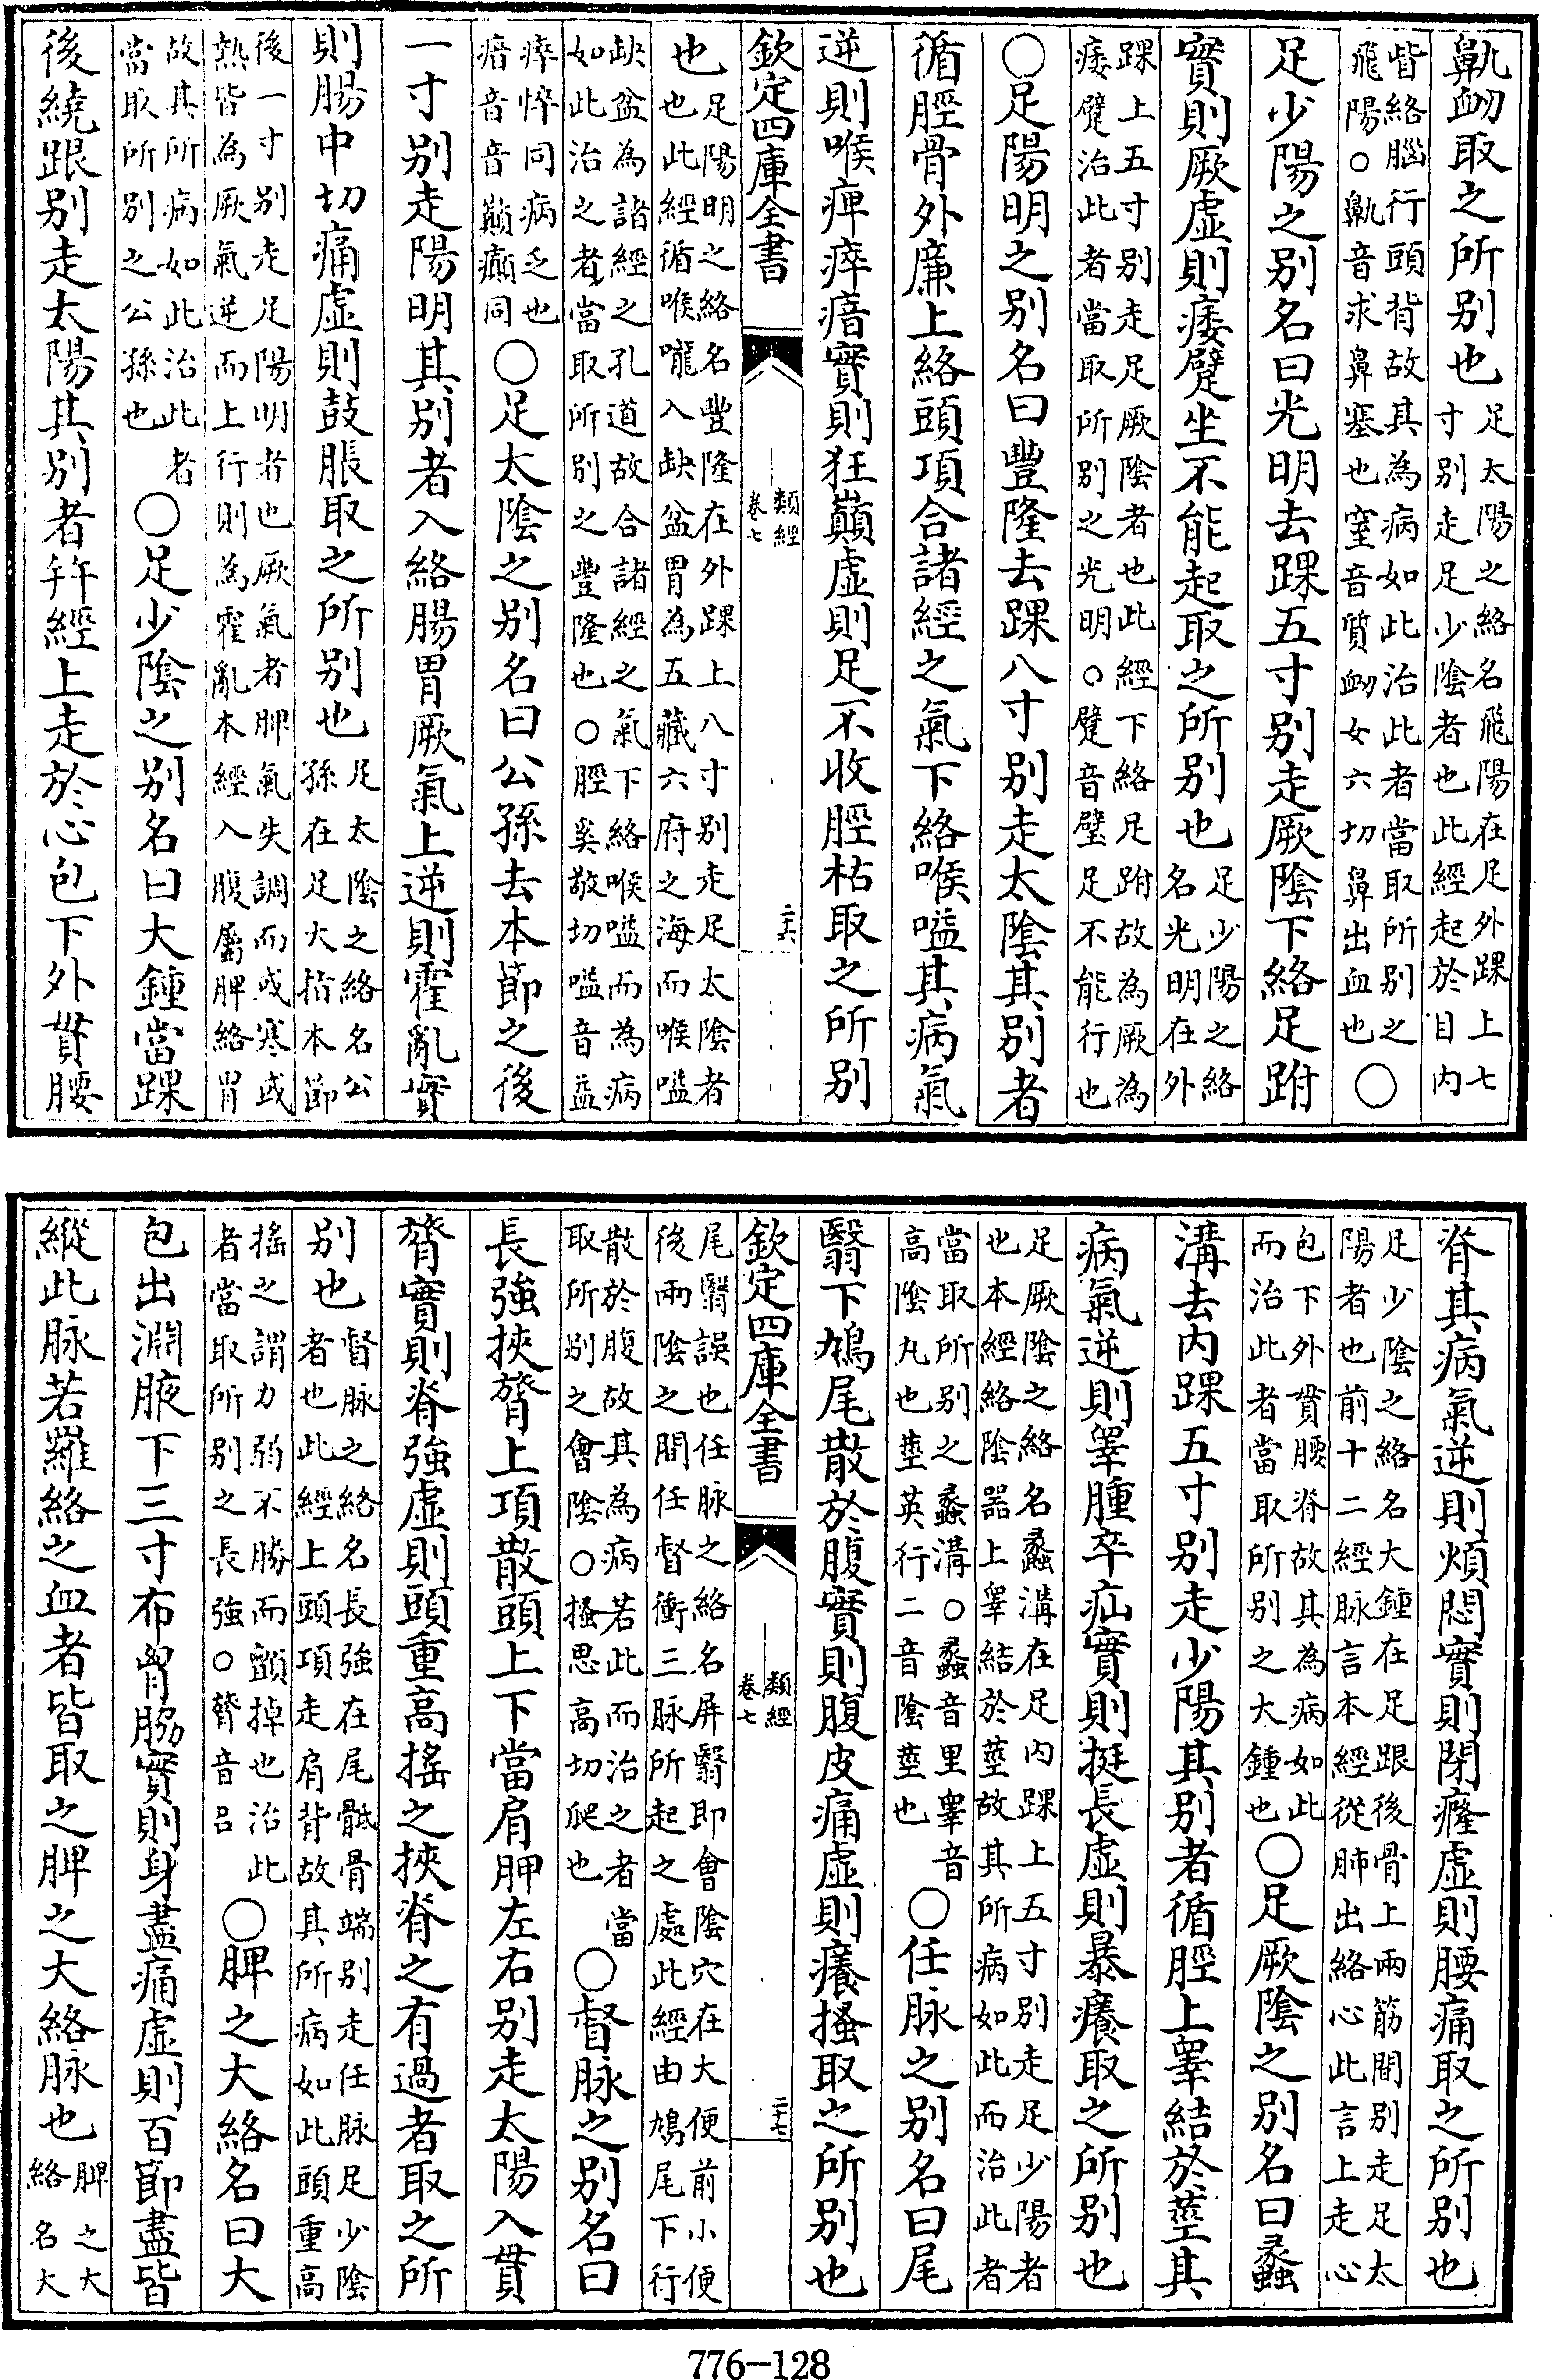 鼽衂取之所别也足太陽之絡名飛陽在足外踝上七寸别走足少陰者也此經起於目内
眥絡腦行頭背故其為病如此治此者當取所别之飛陽○鼽音求鼻塞也窒音質衂女六切鼻出血也○
足少陽之别名曰光明去踝五寸别走厥陰下絡足跗
實則厥虛則痿躄坐不能起取之所别也足少陽之絡名光明在外
踝上五寸别走足厥陰者也此經下絡足跗故為厥為痿躄治此者當取所别之光明○躄音壁足不能行也
○足陽明之别名曰豐隆去踝八寸别走太陰其别者
循脛骨外廉上絡頭項合諸經之氣下絡喉嗌其病氣
逆則喉痺瘁瘖實則狂巔虛則足不收脛枯取之所别
欽定四庫全書
類經
卷七
二十六
也足陽明之絡名豐隆在外踝上八寸别走足太陰者也此經循喉嚨入缺盆胃為五藏六府之海而喉嗌
缺盆為諸經之孔道故合諸經之氣下絡喉嗌而為病如此治之者當取所别之豐隆也○脛奚敬切嗌音益
瘁悴同病乏也瘖音音巔癲同○足太陰之别名曰公孫去本節之後
一寸别走陽明其别者入絡腸胃厥氣上逆則霍亂實
則腸中切痛虛則鼓脹取之所别也足太陰之絡名公孫在足大指本節
後一寸别走足陽明者也厥氣者脾氣失調而或寒或熱皆為厥氣逆而上行則為霍亂本經入腹屬脾絡胃
故其所病如此治此者當取所别之公孫也○足少陰之别名曰大鍾當踝
後繞跟别走太陽其别者并經上走於心包下外貫腰
脊其病氣逆則煩悶實則閉癃虛則腰痛取之所别也
足少陰之絡名大鍾在足跟後骨上兩筋間别走足太陽者也前十二經脉言本經從肺出絡心此言上走心
包下外貫腰脊故其為病如此而治此者當取所别之大鍾也○足厥陰之别名曰蠡
溝去内踝五寸别走少陽其别者循脛上睪結於莖其
病氣逆則睪腫卒疝實則挺長虛則暴癢取之所别也
足厥陰之絡名蠡溝在足内踝上五寸别走足少陽者也本經絡陰器上睪結於莖故其所病如此而治此者
當取所别之蠡溝○蠡音里睪音高陰丸也莖英行二音陰莖也○任脉之别名曰尾
翳下鳩尾散於腹實則腹皮痛虛則癢搔取之所别也
欽定四庫全書
類經
卷七
二十七
尾翳誤也任脉之絡名屏翳即會陰穴在大便前小便後兩陰之間任督衝三脉所起之處此經由鳩尾下行
散於腹故其為病若此而治之者當取所别之會陰○搔思高切爬也○督脉之别名曰
長強挾膂上項散頭上下當肩胛左右别走太陽入貫
膂實則脊強虛則頭重高搖之挾脊之有過者取之所
别也督脉之絡名長強在尾骶骨端别走任脉足少陰者也此經上頭項走肩背故其所病如此頭重高
搖之謂力弱不勝而顫掉也治此者當取所别之長強○膂音呂○脾之大絡名曰大
包出淵腋下三寸布胷脇實則身盡痛虛則百節盡皆
縱此脉若羅絡之血者皆取之脾之大絡脉也脾之大絡名大
776-128